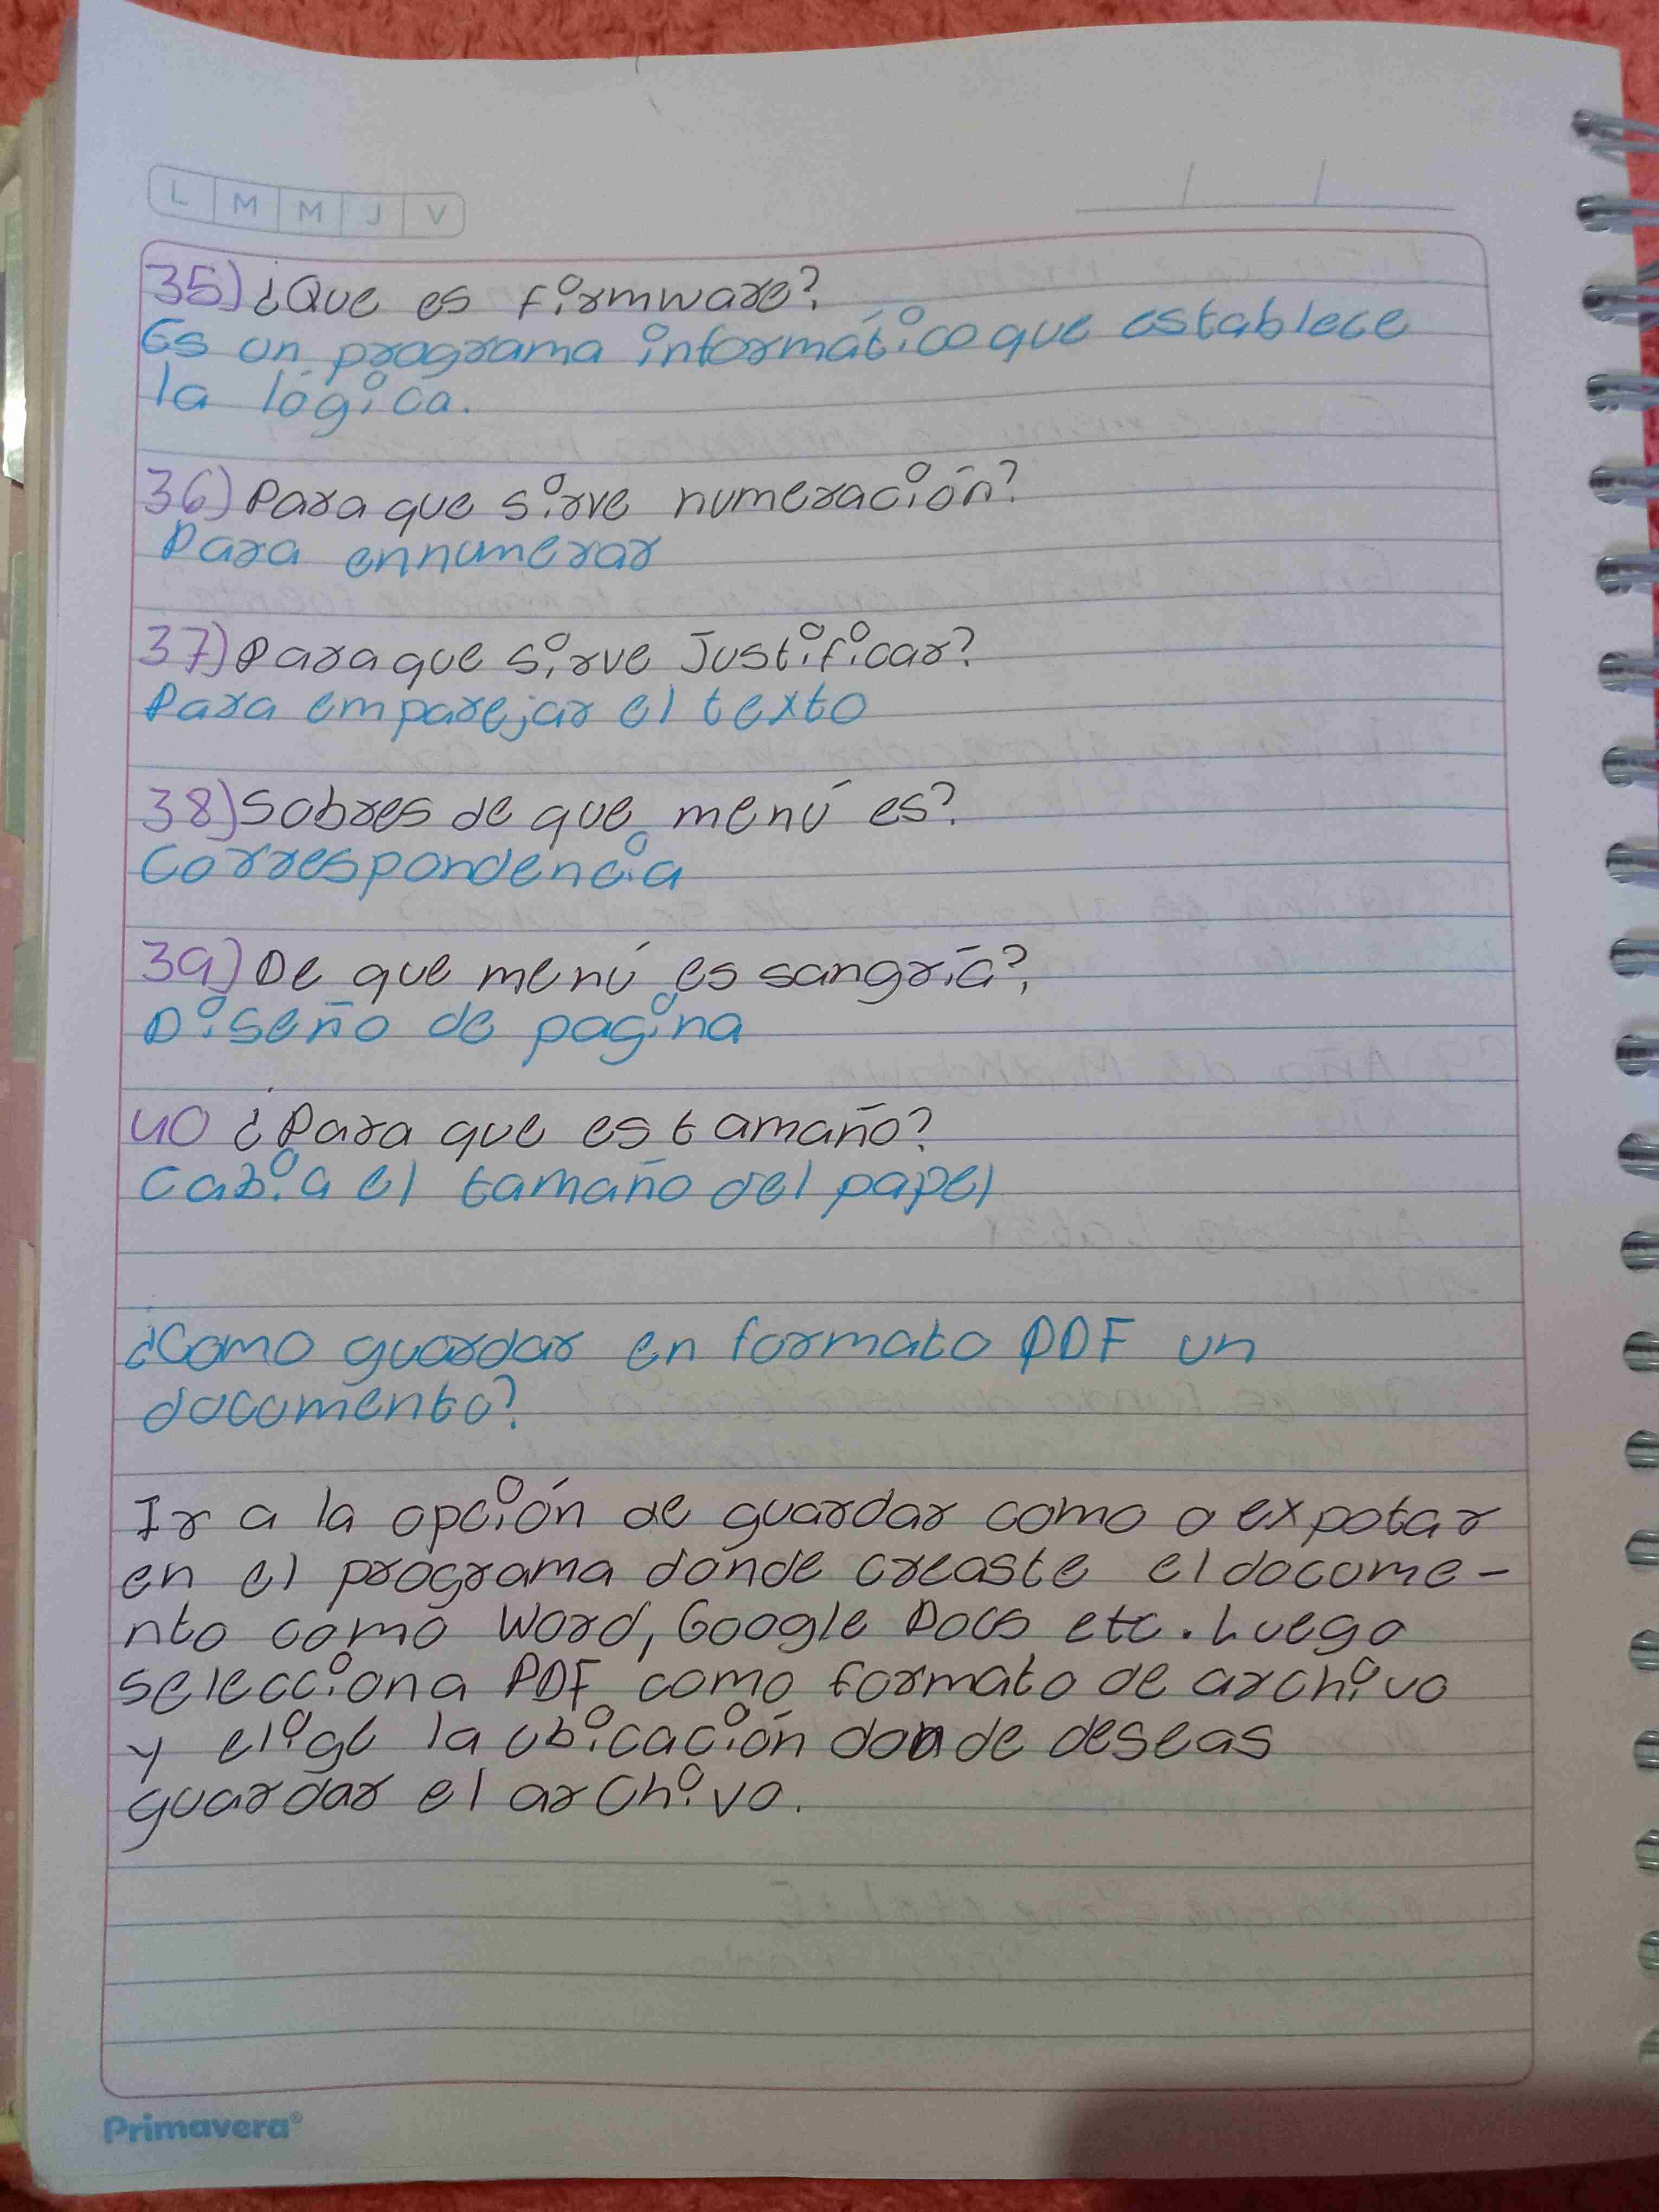 L M M J V
35) ¿Que es firmware?
Es un programa informático que establece
la lógica.
36) Para que sirve numeración?
Para ennumerar
37) Para que sirve Justificar?
Para emparejar el texto
38) Sobres de que menú es?
Correspondencia
39) De que menú es sangría?
Diseño de pagina
40 ¿Para que es tamaño?
Cabia el tamaño del papel
¿Como guardar en formato PDF un
documento?
Ir a la opción de guardar como o expotar
en el programa donde creaste el docume-
nto como Word, Google Docs etc. Luego
selecciona PDF como formato de archivo
y elige la ubicación donde deseas
guardar el archivo.
Primavera®